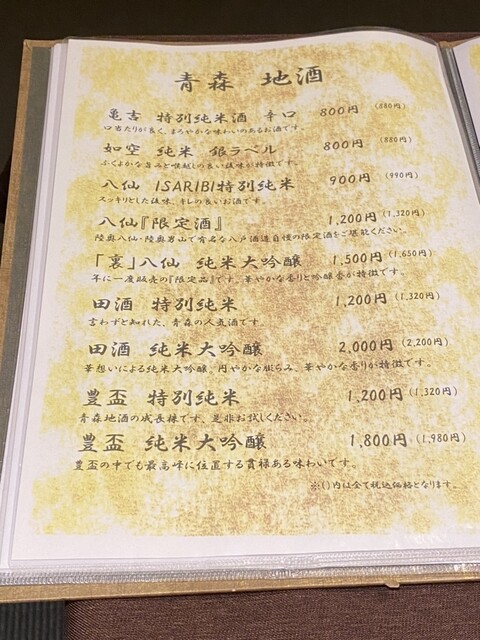 青森 地酒
亀吉 特別純米酒 辛口 800円 (880円)
口当たりが良く、まろやかな味わいのあるお酒です。
如空 純米 銀ラベル 800円 (880円)
ふくよかな旨みと喉越しの良い後味が特徴です。
八仙 ISARIBI特別純米 900円 (990円)
スッキリとした後味、キレの良いお酒です。
八仙『限定酒』 1,200円 (1,320円)
陸奥八仙・陸奥男山で有名な八戸酒造自慢の限定酒をご堪能ください。
「裏」八仙 純米大吟醸 1,500円 (1,650円)
年に一度販売の『限定品』です。華やかな香りと吟醸香が特徴です。
田酒 特別純米 1,200円 (1,320円)
言わずと知れた、青森の人気酒です。
田酒 純米大吟醸 2,000円 (2,200円)
華想いによる純米大吟醸、円やかな膨らみ、華やかな香りが特徴です。
豊盃 特別純米 1,200円 (1,320円)
青森地酒の成長株です、是非お試しください。
豊盃 純米大吟醸 1,800円 (1,980円)
豊盃の中でも最高峰に位置する貫禄ある味わいです。
※()内は全て税込価格となります。